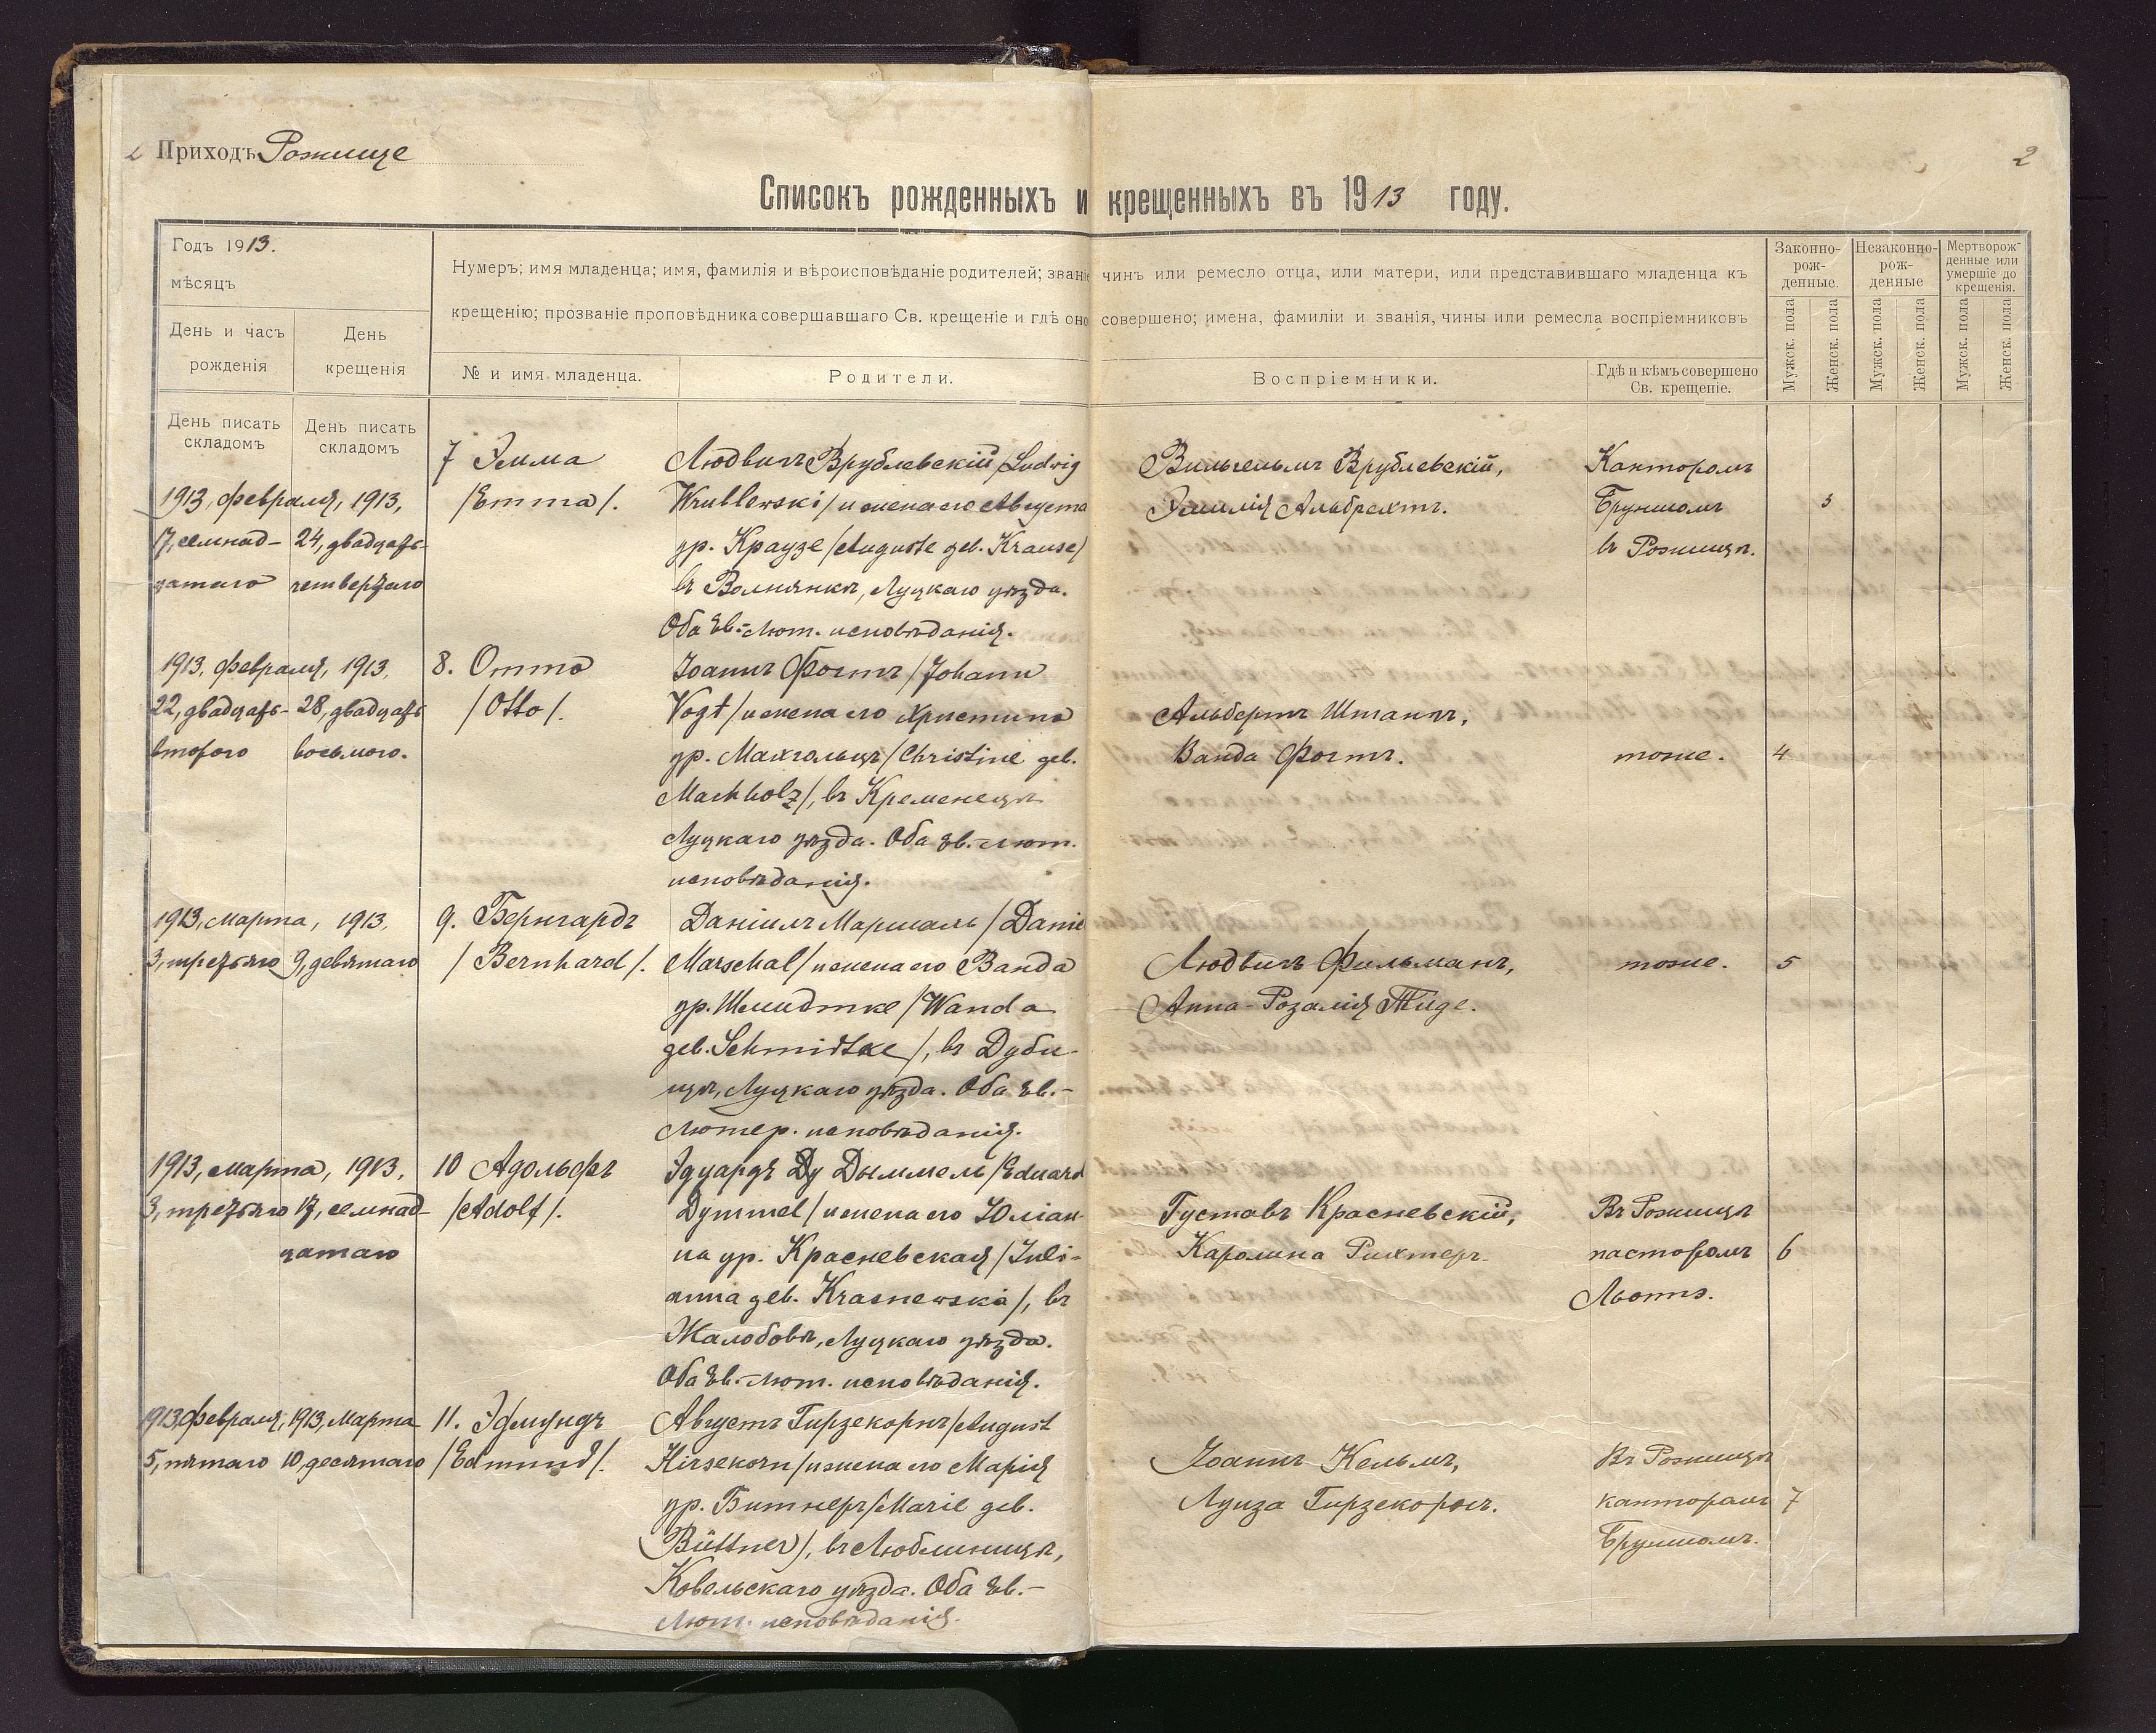 2 Приходъ Рожище
2
Списокъ рожденныхъ и крещенныхъ въ 1913 году.
Годъ 1913.
мѣсяцъ
День и часъ
рожденія
День
крещенія
Нумеръ; имя младенца; имя, фамилія и вѣроисповѣданіе родителей; званіе чинъ или ремесло отца, или матери, или представившаго младенца къ
крещенію; прозваніе проповѣдника совершавшаго Св. крещеніе и гдѣ оно совершено; имена, фамиліи и званія, чины или ремесла воспріемниковъ
№ и имя младенца.
Родители.
Воспріемники.
Гдѣ и кѣмъ совершено
Св. крещеніе.
Законно-
рож-
денные.
Незаконно-
рож-
денные
Мертворож-
денные или
умершіе до
крещенія.
Мужск. пола
Женск. пола
Мужск. пола
Женск. пола
Мужск. пола
Женск. пола
День писать
складомъ
День писать
складомъ
1913, февраля, 1913,
17, семнад- 24, двадцать
цатаго четвертаго
7 Эмма
/Emma/.
Людвигъ Врублевскій /Ludwig
Wrublewski/ и жена его Августа
ур. Краузе /Auguste geb. Krause/
въ Волнянкѣ, Луцкаго уѣзда.
Оба Ев.-Лют. исповѣданія.
Вильгельмъ Врублевскій,
Эмилія Альбрехтъ.
Канторомъ
Бруншомъ
въ Рожищѣ.
3
1913, февраля, 1913,
22, двадцать- 28, двадцать
второго восьмого.
8. Отто
/Otto/.
Іоаннъ Фогтъ /Johann
Vogt/ и жена его Христина
ур. Махгольцъ /Christine geb.
Machholz/, въ Кременецѣ
Луцкаго уѣзда. Оба Ев.-Лют.
исповѣданія.
Альбертъ Штанкъ,
Ванда Фогтъ.
тоже.
4
1913, марта, 1913,
3, третьяго 9, девятаго
9. Бернгардъ
/Bernhard/.
Даніилъ Маршаль /Danie
Marschal/ и жена его Ванда
ур. Шмидтке /Wanda
geb. Schmidtke/, въ Дуби-
щѣ, Луцкаго уѣзда. Оба Ев.-
Лютер. исповѣданія.
Людвигъ Фильманъ,
Анна-Розалія Тиде.
тоже.
5
1913, марта, 1913,
3, третьяго 17, семнад-
цатаго
10 Адольфъ
/Adolf/.
Эдуардъ Ду Дыммель /Eduard
Dymmel/ и жена его Юліан-
на ур. Красневская /Juli-
anna geb. Krasnewska/, въ
Жалобовѣ, Луцкаго уѣзда.
Оба Ев.-Лют. исповѣданія.
Густавъ Красневскій,
Каролина Рихтеръ.
Въ Рожищѣ
пасторомъ
Льоппэ.
6
1913, февраля, 1913, Марта
5, пятаго 10, десятаго
11. Эдмундъ
/Edmund/.
Августъ Гирзекорнъ /August
Hirsekorn/ и жена его Марія
ур. Битнеръ /Marie geb.
Büttner/, въ Люблинищѣ,
Ковельскаго уѣзда. Оба Ев.-
Лют. исповѣданія.
Іоаннъ Кельмъ,
Луиза Гирзекорнъ.
Въ Рожищѣ
канторомъ
Бруншомъ.
7